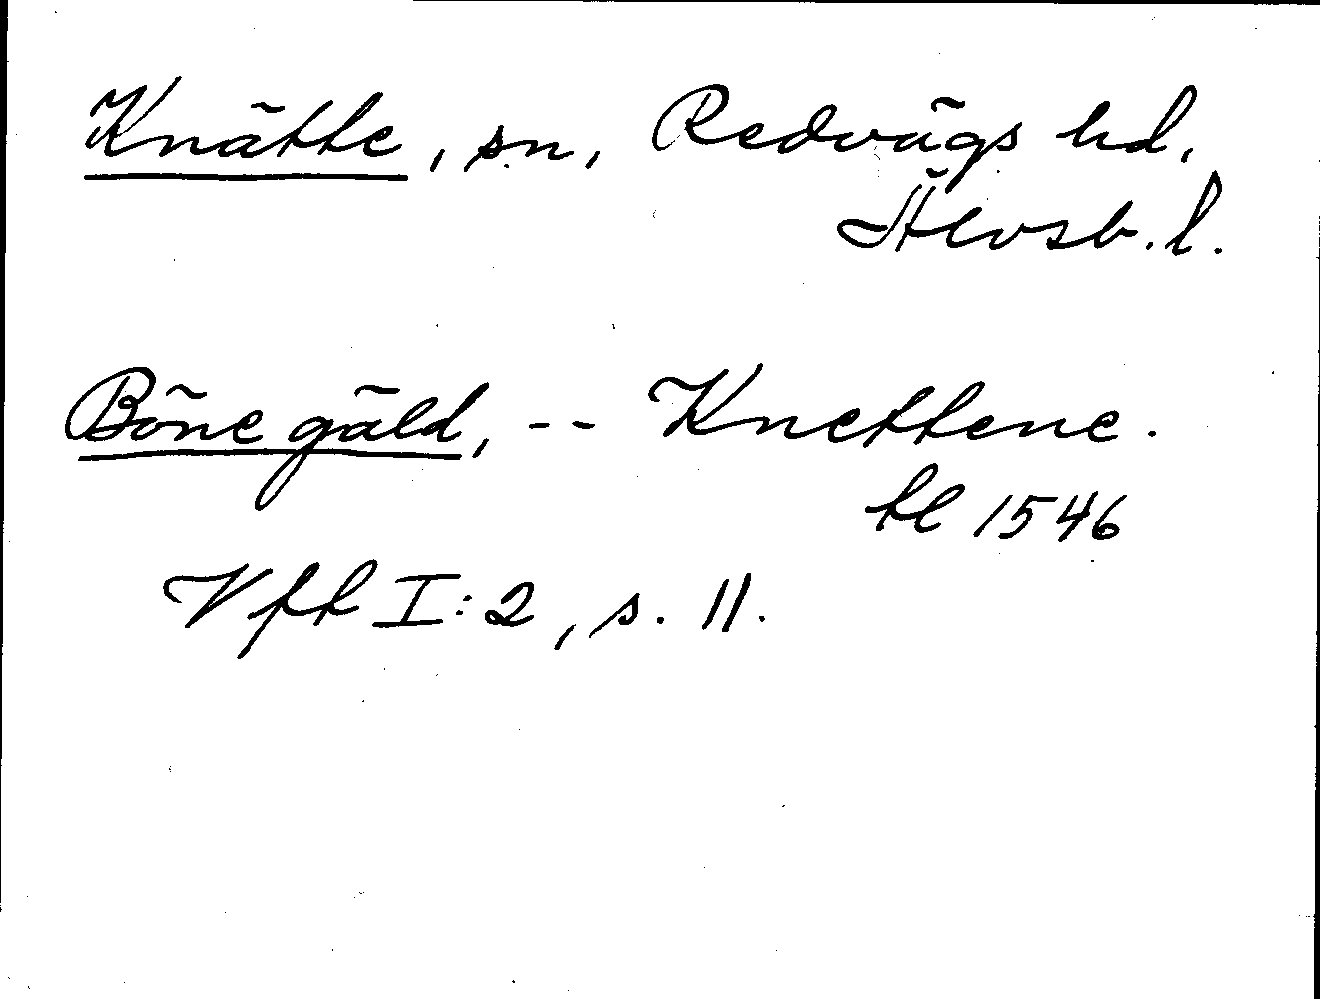 Knätte, sn, Redvägs hd,
Älvsb. l.
Böne gäld, -- Knettene.
tl 1546
Vft I:2, s. 11.